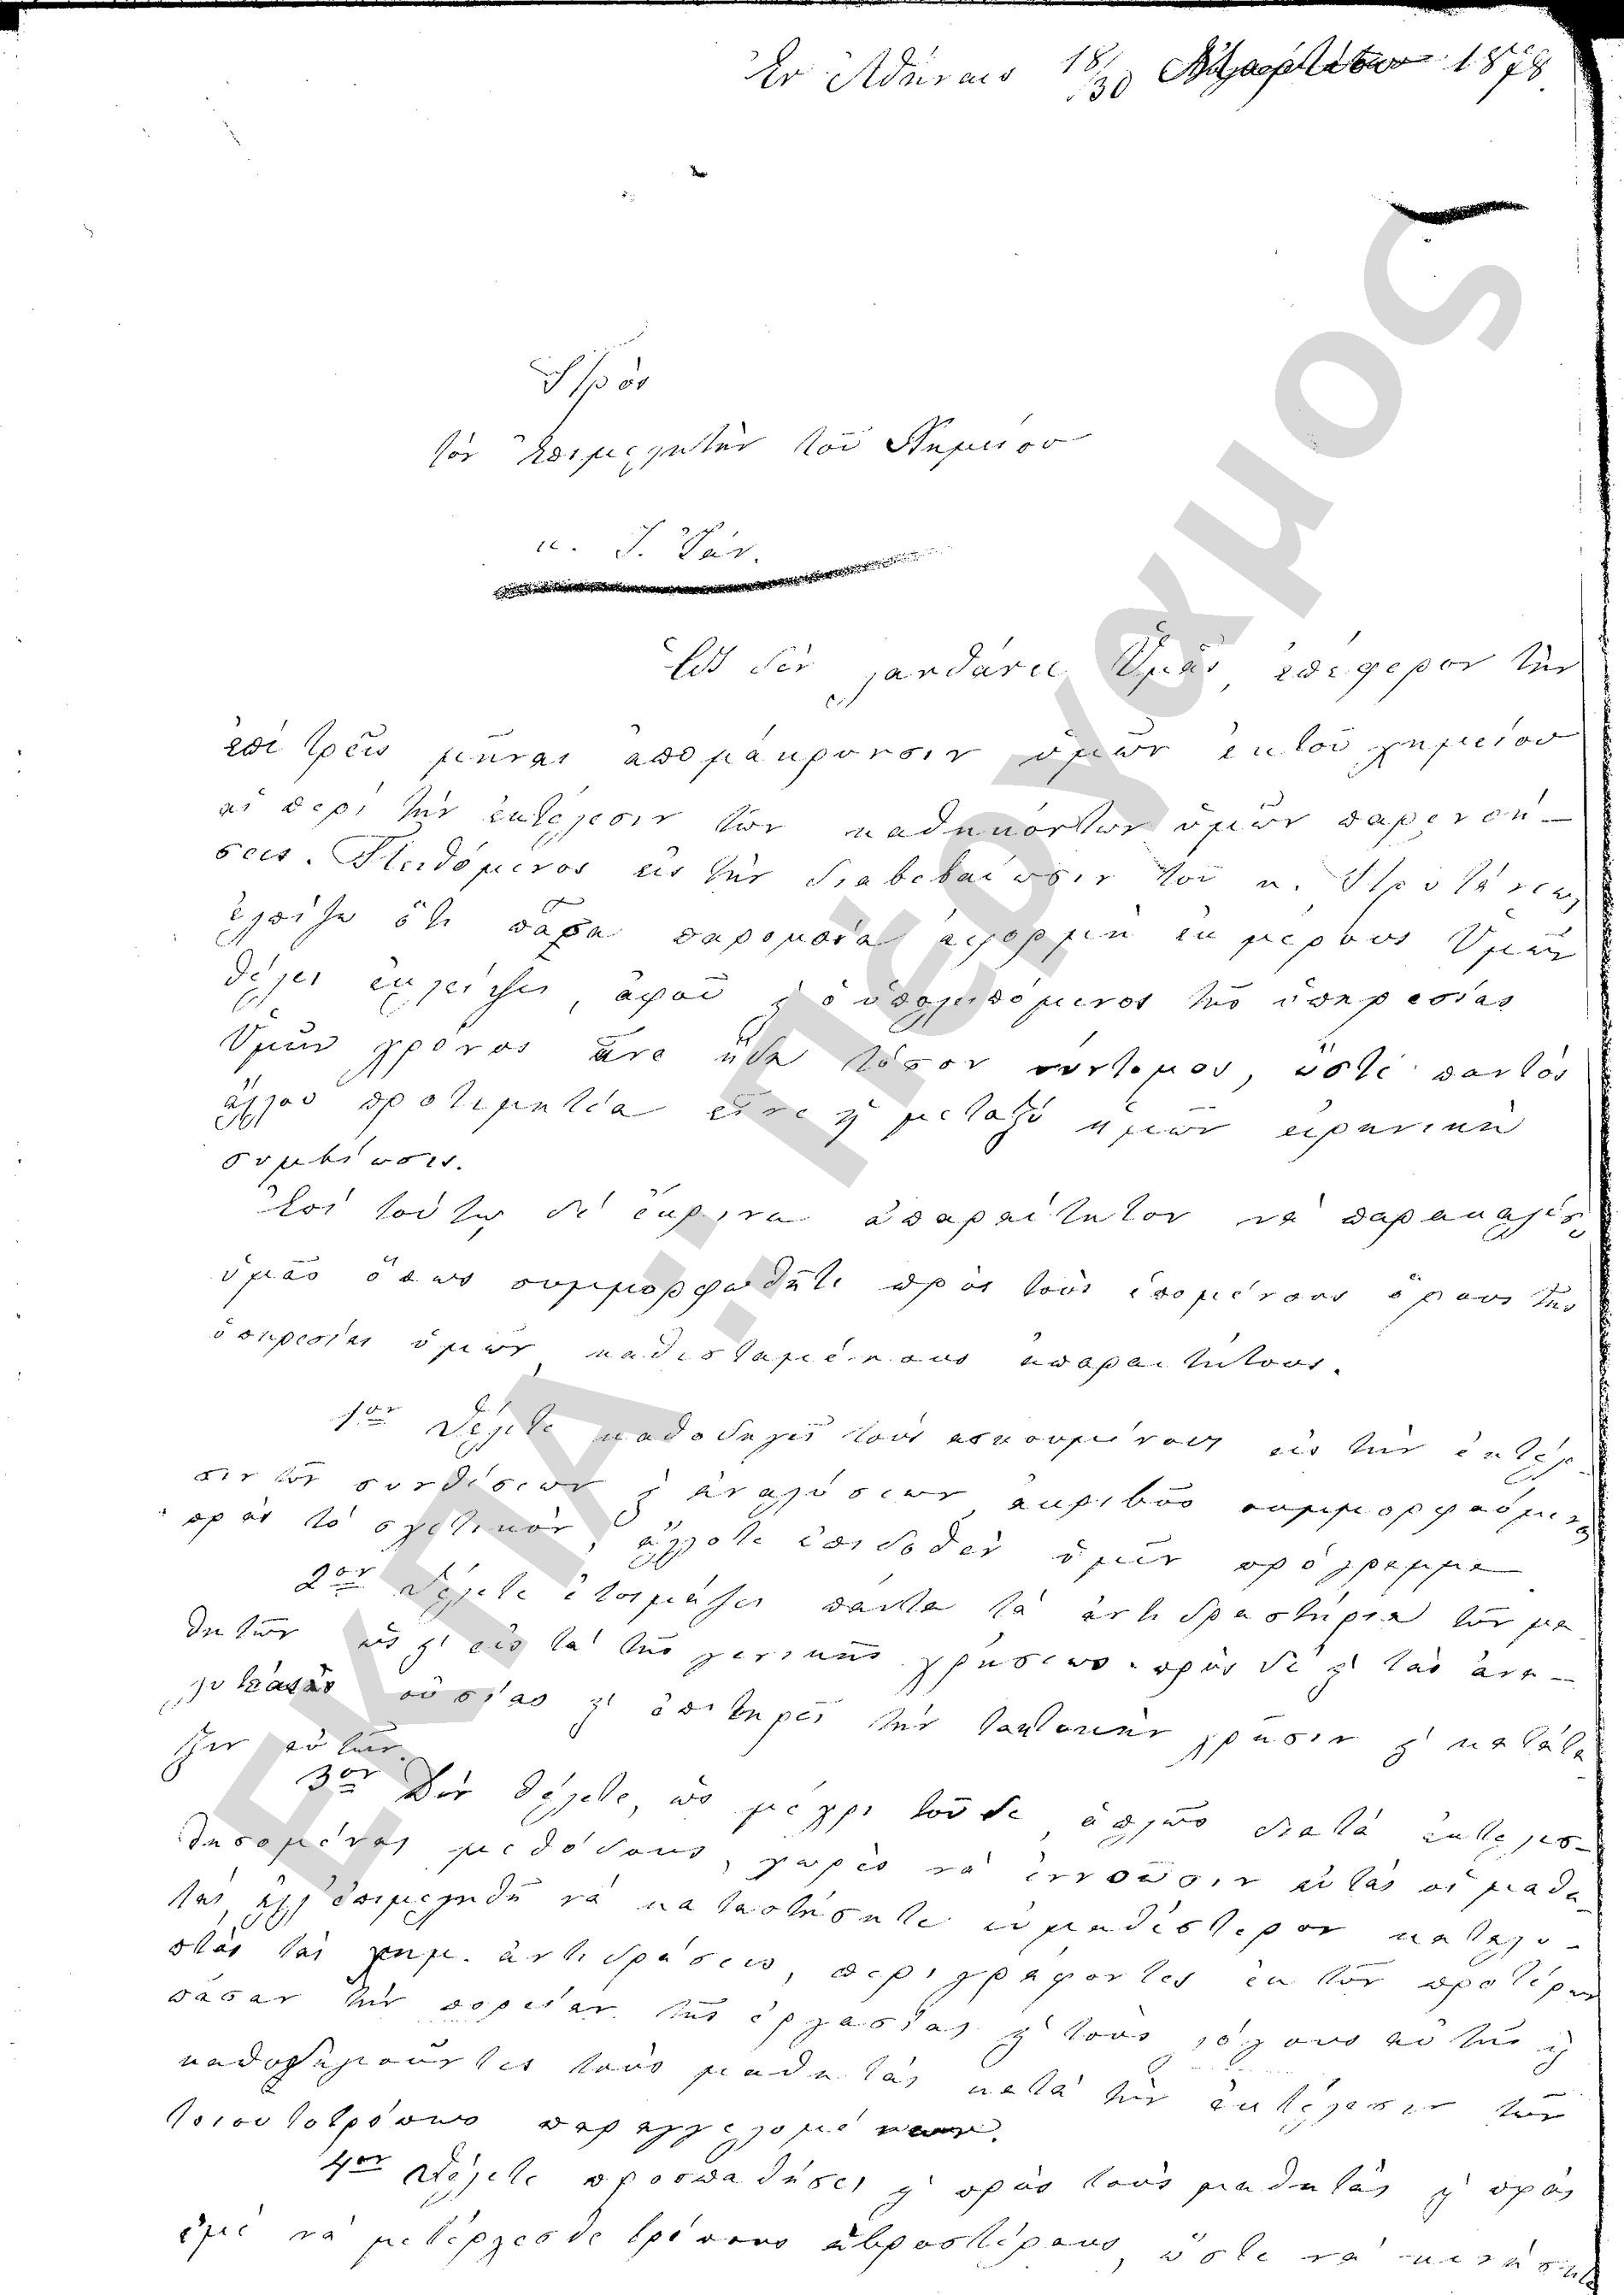 Ἐν Ἀθήναις 18/30 Ἀπριλίου 1878
Πρὸς
τὸν Ἐπιμελητὴν τοῦ Χημείου
κ. Ι. Πάν.
Ἐὰν δὲν λανθάνω Ὑμᾶς, ἐπέφερον τὴν
ἐπὶ τρεῖς μῆνας ἀπομάκρυνσιν ὑμῶν ἐκ τοῦ χημείου
αἱ περὶ τὴν ἐκτέλεσιν τῶν καθηκόντων ὑμῶν παρενοή-
σεις. Πειθόμενος εἰς τὴν διαβεβαίωσιν τοῦ κ. Πρυτάνεως
ἐλπίζω ὅτι πᾶσα παρομοία ἀφορμὴ ἐκ μέρους Ὑμῶν
θέλει ἐκλείψει, ἀφοῦ ὁ ὑπολειπόμενος τῆς ὑπηρεσίας
Ὑμῶν χρόνος εἶνε ἤδη τόσον σύντομος, ὥστε παντὸς
ἄλλου προτιμητέα εἶνε ἡ μεταξὺ ἡμῶν εἰρηνικὴ
συμβίωσις.
Ἐπὶ τούτῳ δὲ ἔκρινα ἀπαραίτητον νὰ παρακαλέσω
ὑμᾶς ὅπως συμμορφωθῆτε πρὸς τοὺς ἑπομένους ὅρους τῆς
ὑπηρεσίας ὑμῶν, καθισταμένους ἀπαραιτήτους.
1ον Θέλετε καθοδηγεῖ τοὺς ἀσκουμένους εἰς τὴν ἐκτέλε-
σιν τῶν συνθέσεων καὶ ἀναλύσεων ἀκριβῶς συμμορφούμενος
πρὸς τὸ σχετικὸν, ἄλλοτε ἐπιδοθὲν ὑμῖν πρόγραμμα
2ον Θέλετε ἑτοιμάζει πάντα τὰ ἀντιδραστήρια τῶν μα
θητῶν ὡς καὶ εἰς τὰ τῆς γενικῆς χρήσεως, πρὸς δὲ καὶ τὰς ἀνα-
λυτέας οὐσίας καὶ ἐπιτηρεῖ τὴν τακτικὴν χρῆσιν καὶ κατάτα
ξιν αὐτῶν.
3ον Δὲν θέλετε, ὡς μέχρι τοῦδε, ἁπλῶς διατὰ ἐκτελεσ-
θησομένας μεθόδους, χωρὶς νὰ ἐννοῶσιν αὐτὰς οἱ μαθη
ταὶ, ἀλλ' ἐπιμεληθῆ νὰ καταστήσητε εὐμαθέστερον καταλη-
πτὰς τὰς χημ. ἀντιδράσεις, περιγράφοντες ἐκ τῶν προτέρων
πᾶσαν τὴν πορείαν τῆς ἐργασίας καὶ τοὺς λόγους αὐτῆς καὶ
καθοδηγοῦντες τοὺς μαθητὰς κατὰ τὴν ἐκτέλεσιν τῶν
τοιουτοτρόπως παραγγελομένων.
4ον Θέλετε προσπαθήσει καὶ πρὸς τοὺς μαθητὰς καὶ πρὸς
ἐμὲ νὰ μετέρχεσθε τρόπους ἁβροτέρους, ὥστε νὰ
ΕΚΠΑ.: Πέργαμος